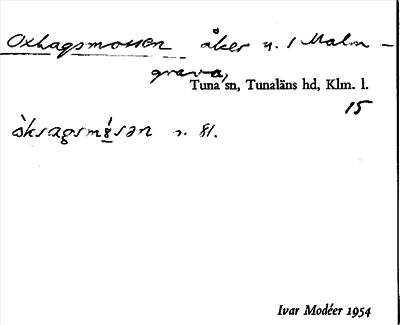 Oxhagsmossen åker u. 1 Malm-
grava,
Tuna sn, Tunaläns hd, Klm. l.
15
81.
Ivar Modéer 1954